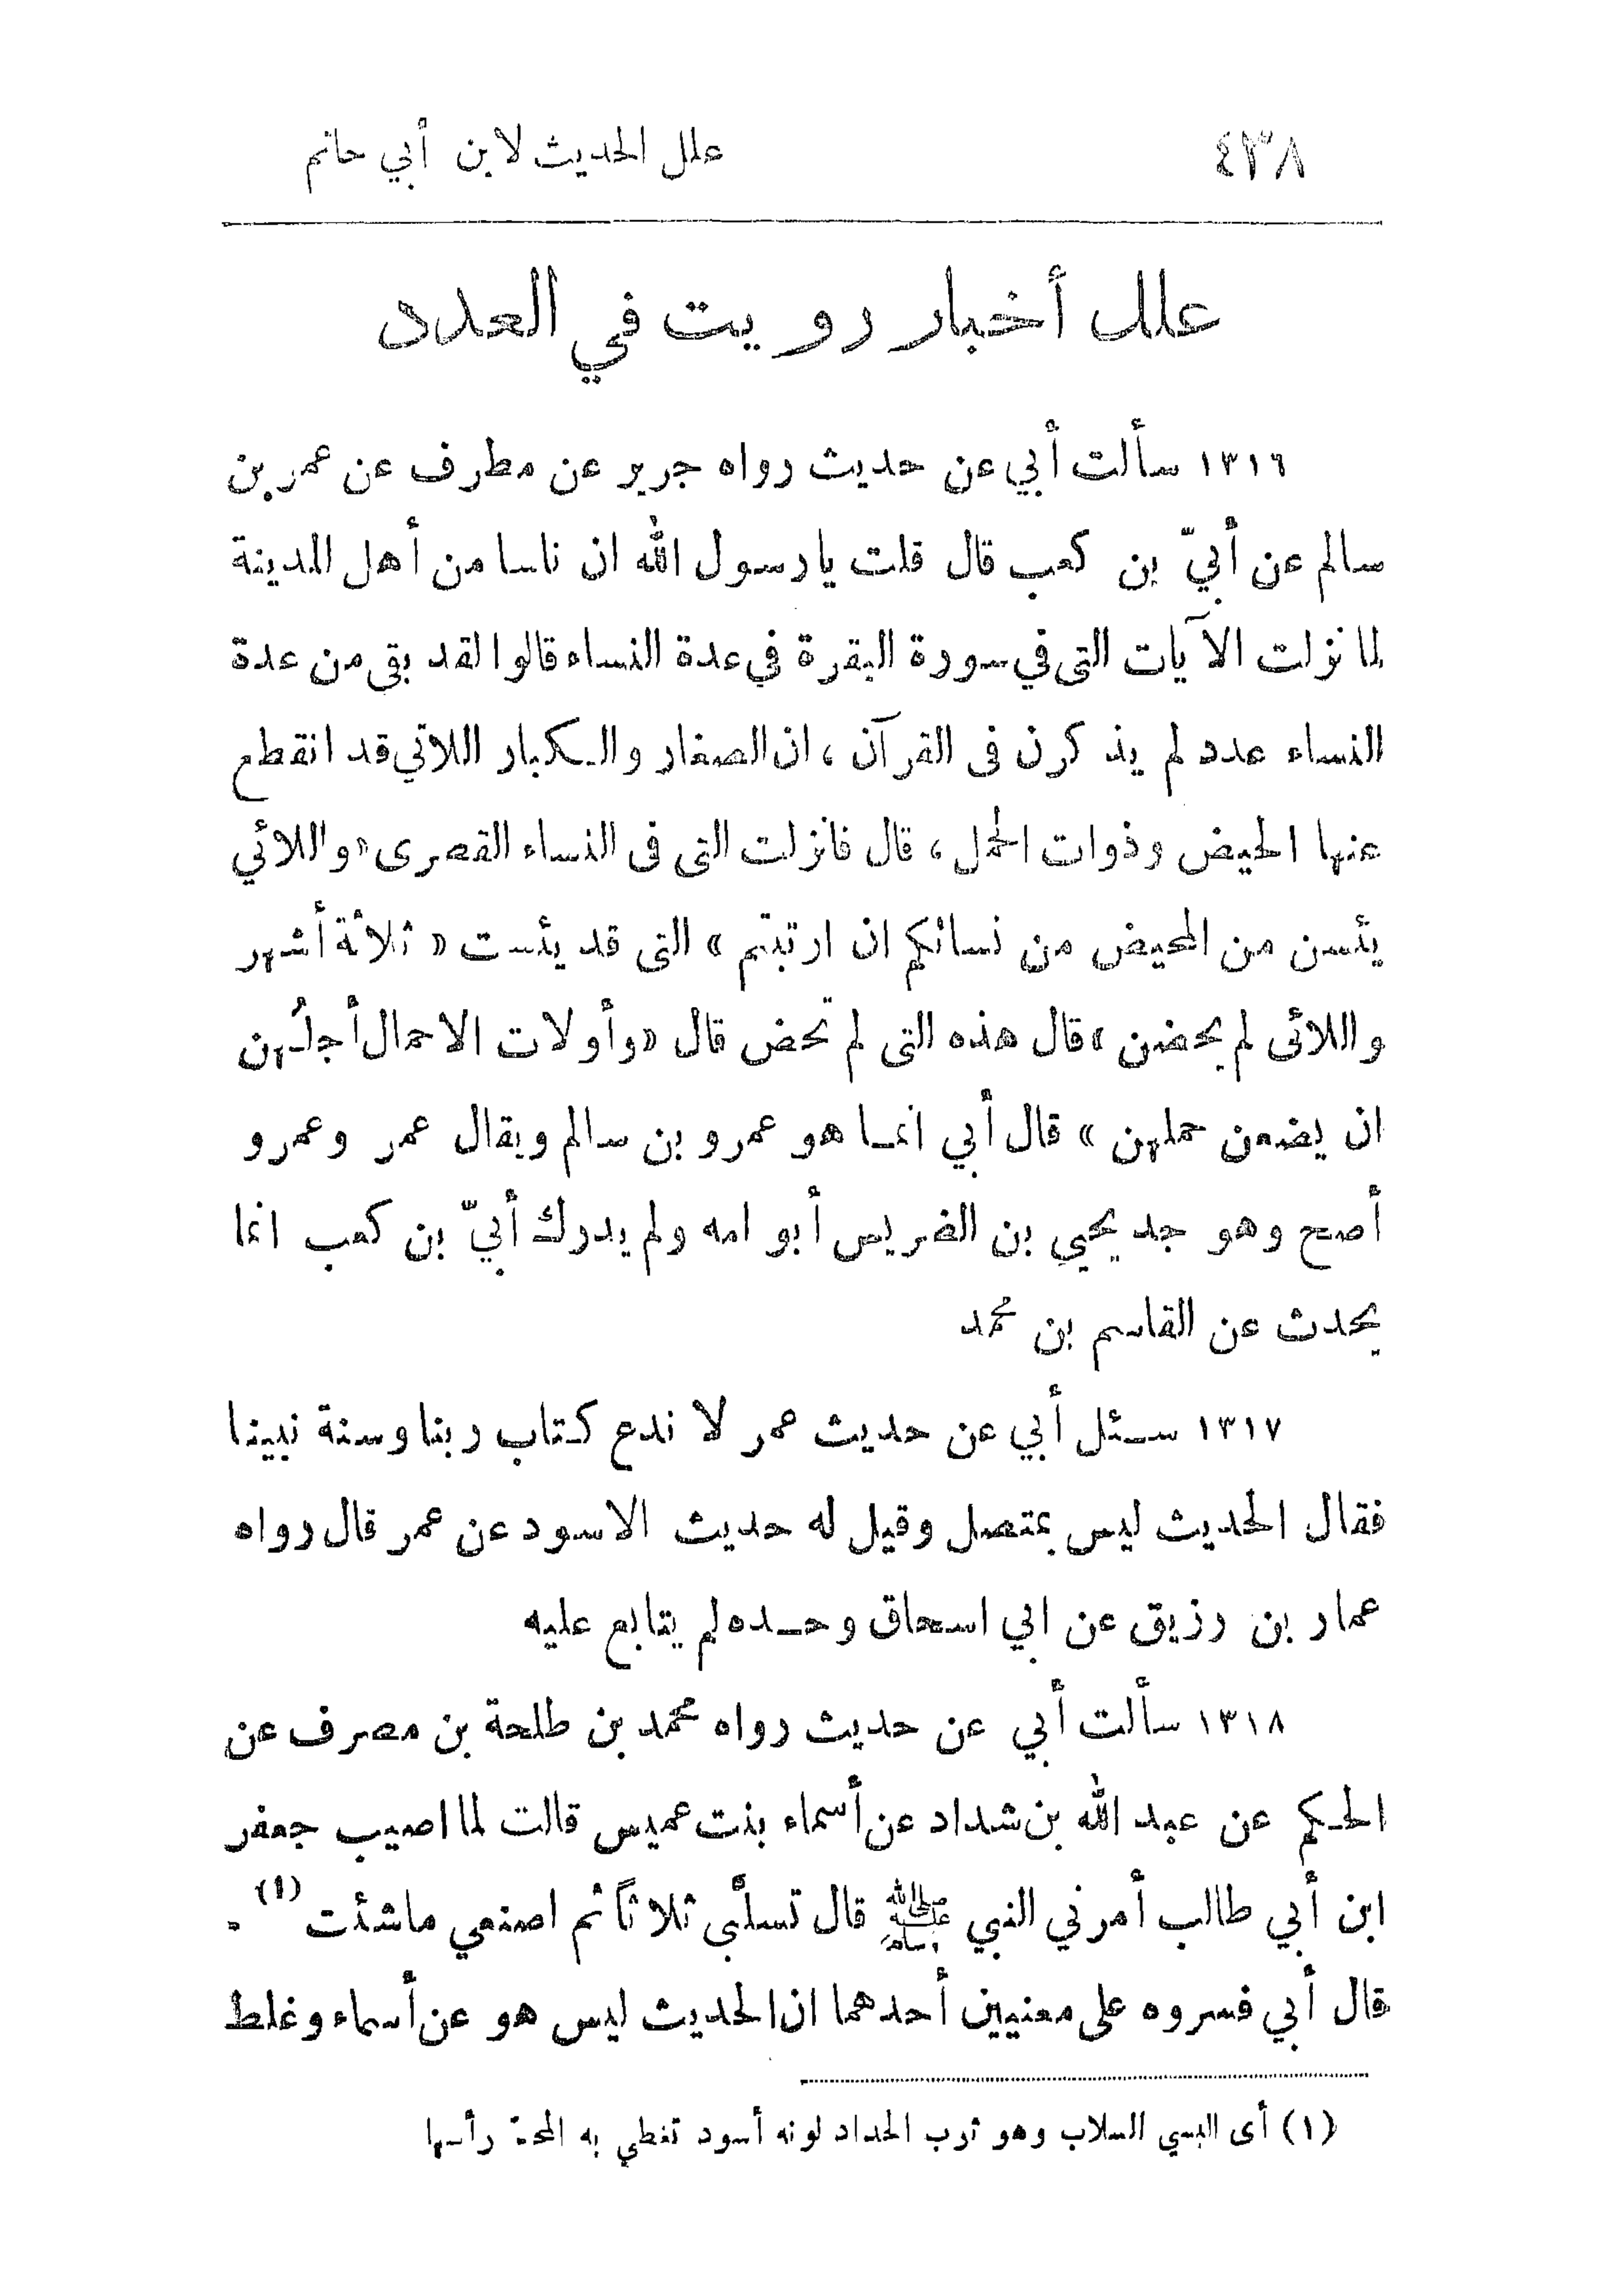 ٤٣٨ علل الحديث لابن أبي حاتم
علل أخبار رويت في العدد
١٣١٦ سألت أبي عن حديث رواه جرير عن مطرف عن عمر بن
سالم عن أبيّ بن كعب قال قلت يا رسول الله ان ناسا من أهل المدينة
لما نزلت الآيات التى في سورة البقرة في عدة النساء قالوا لقد بقى من عدة
النساء عدد لم يذكرن فى القرآن ، ان الصغار والكبار اللاتي قد انقطع
عنها الحيض وذوات الحمل ، قال فانزلت التى فى النساء القصرى «واللائي
يئسن من المحيض من نسائكم ان ارتبتم » التى قد يئست « ثلاثة أشهر
واللائى لم يحضن » قال هذه التى لم تحض قال «وأولات الاحمال أجلُهن
ان يضعن حملهن » قال أبي انما هو عمرو بن سالم ويقال عمر وعمرو
أصح وهو جد يحيي بن الضريس أبو امه ولم يدرك أبيّ بن كعب انما
يحدث عن القاسم بن محمد
١٣١٧ سئل أبي عن حديث عمر لا ندع كتاب ربنا وسنة نبينا
فقال الحديث ليس بمتصل وقيل له حديث الاسود عن عمر قال رواه
عمار بن رزيق عن ابي اسحاق وحده لم يتابع عليه
١٣١٨ سألت أبي عن حديث رواه محمد بن طلحة بن مصرف عن
الحكم عن عبد الله بن شداد عن أسماء بنت عميس قالت لما اصيب جعفر
ابن أبي طالب أمرني النبي ﷺ قال تسلَّبى ثلاثاً ثم اصنعي ماشئت (١) .
قال أبي فسروه على معنيين أحدهما ان الحديث ليس هو عن أسماء وغلط
(١) أى البسي السلاب وهو ثوب الحداد لونه أسود تغطي به المحدّ رأسها